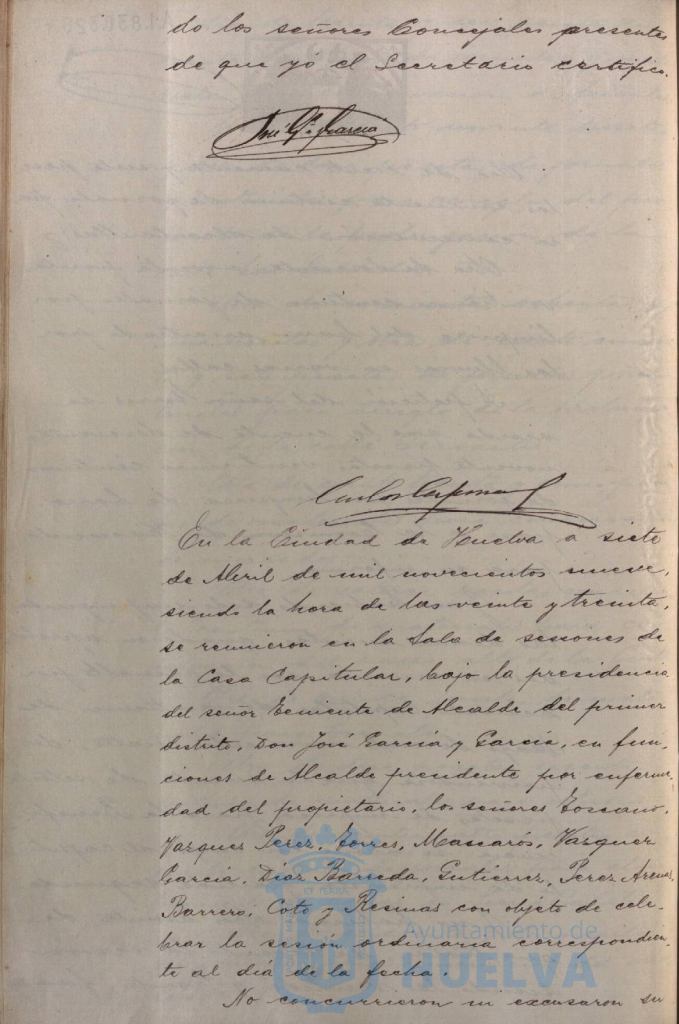 do los señores Concejales presentes
de que yó el Secretario certifico.
José Gª Garcia
En la Ciudad de Huelva a siete
de Abril de mil novecientos nueve,
siendo la hora de las veinte y treinta,
se reunieron en la Sala de sesiones de
la Casa Capitular, bajo la presidencia
del señor Teniente de Alcalde del primer
distrito, Don José García y García, en fun-
ciones de Alcalde presidente por enferme-
dad del propietario, los señores Toscano,
Vazquez Perez, Torres, Mascarós, Vazquez
García, Díaz Barreda, Gutierrez, Perez Arenas,
Barrero, Coto y Resinas con objeto de cele-
brar la sesión ordinaria correspondien-
te al día de la fecha.
No concurrieron ni excusaron su
Ayuntamiento de
HUELVA